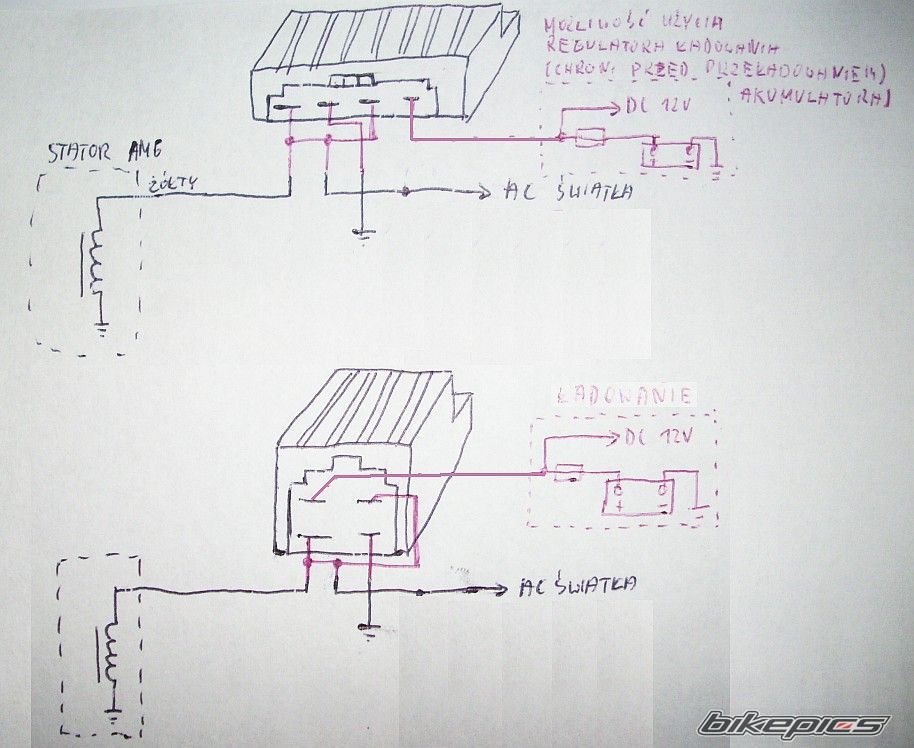 MOŻLIWOŚĆ UŻYCIA
REGULATORA ŁADOWANIA
(CHRONI PRZED PRZEŁADOWANIEM)
AKUMULATORA)
DC 12V
+ -
STATOR AM6
ŻÓŁTY
AC ŚWIATŁA
ŁADOWANIE
DC 12V
+ -
AC ŚWIATŁA
bikepics